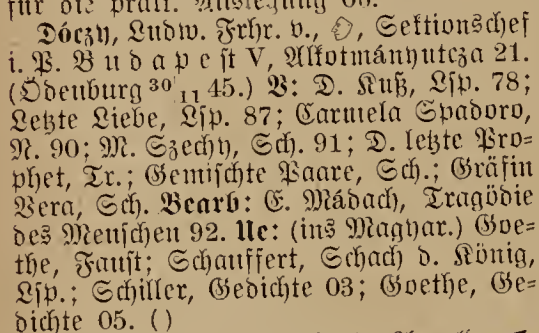 für die prakt. Auslegung 06.
Dóczy, Ludw. Frhr. v., Sektionschef
i. P. Budapest V, Alkotmányutcza 21.
(Ödenburg 30/11 45.) V: D. Kuß, Lsp. 78;
Letzte Liebe, Lsp. 87; Carmela Spadoro,
N. 90; M. Szechy, Sch. 91; D. letzte Pro=
phet, Tr.; Gemischte Paare, Sch.; Gräfin
Vera, Sch. Bearb: E. Mádach, Tragödie
des Menschen 92. Ue: (ins Magyar.) Goe=
the, Faust; Schauffert, Schach d. König,
Lsp.; Schiller, Gedichte 03; Goethe, Ge=
dichte 05. ()